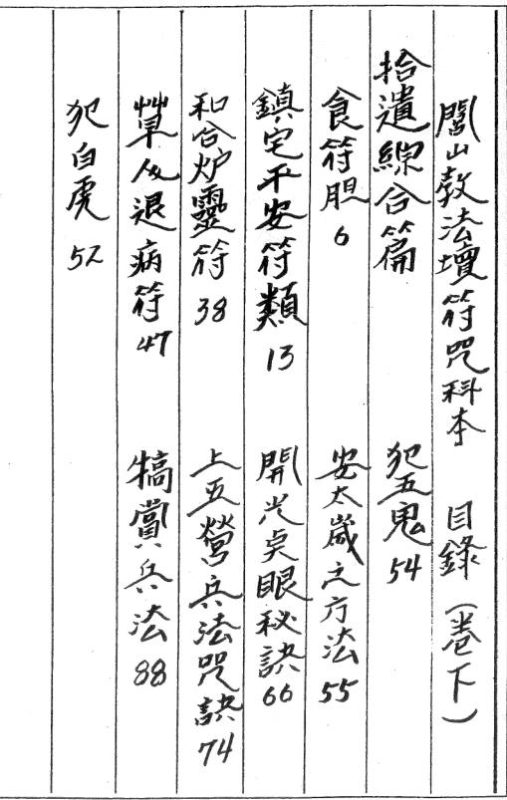 閭山教法壇符咒科本　目錄（卷下）
拾遺綜合篇
食符胆 6
鎮宅平安符類 13
和合炉靈符 38
草人退病符 47
犯白虎 52
犯五鬼 54
安太歲之方法 55
開光点眼秘訣 66
上五營兵法咒訣 74
犒賞兵法 88